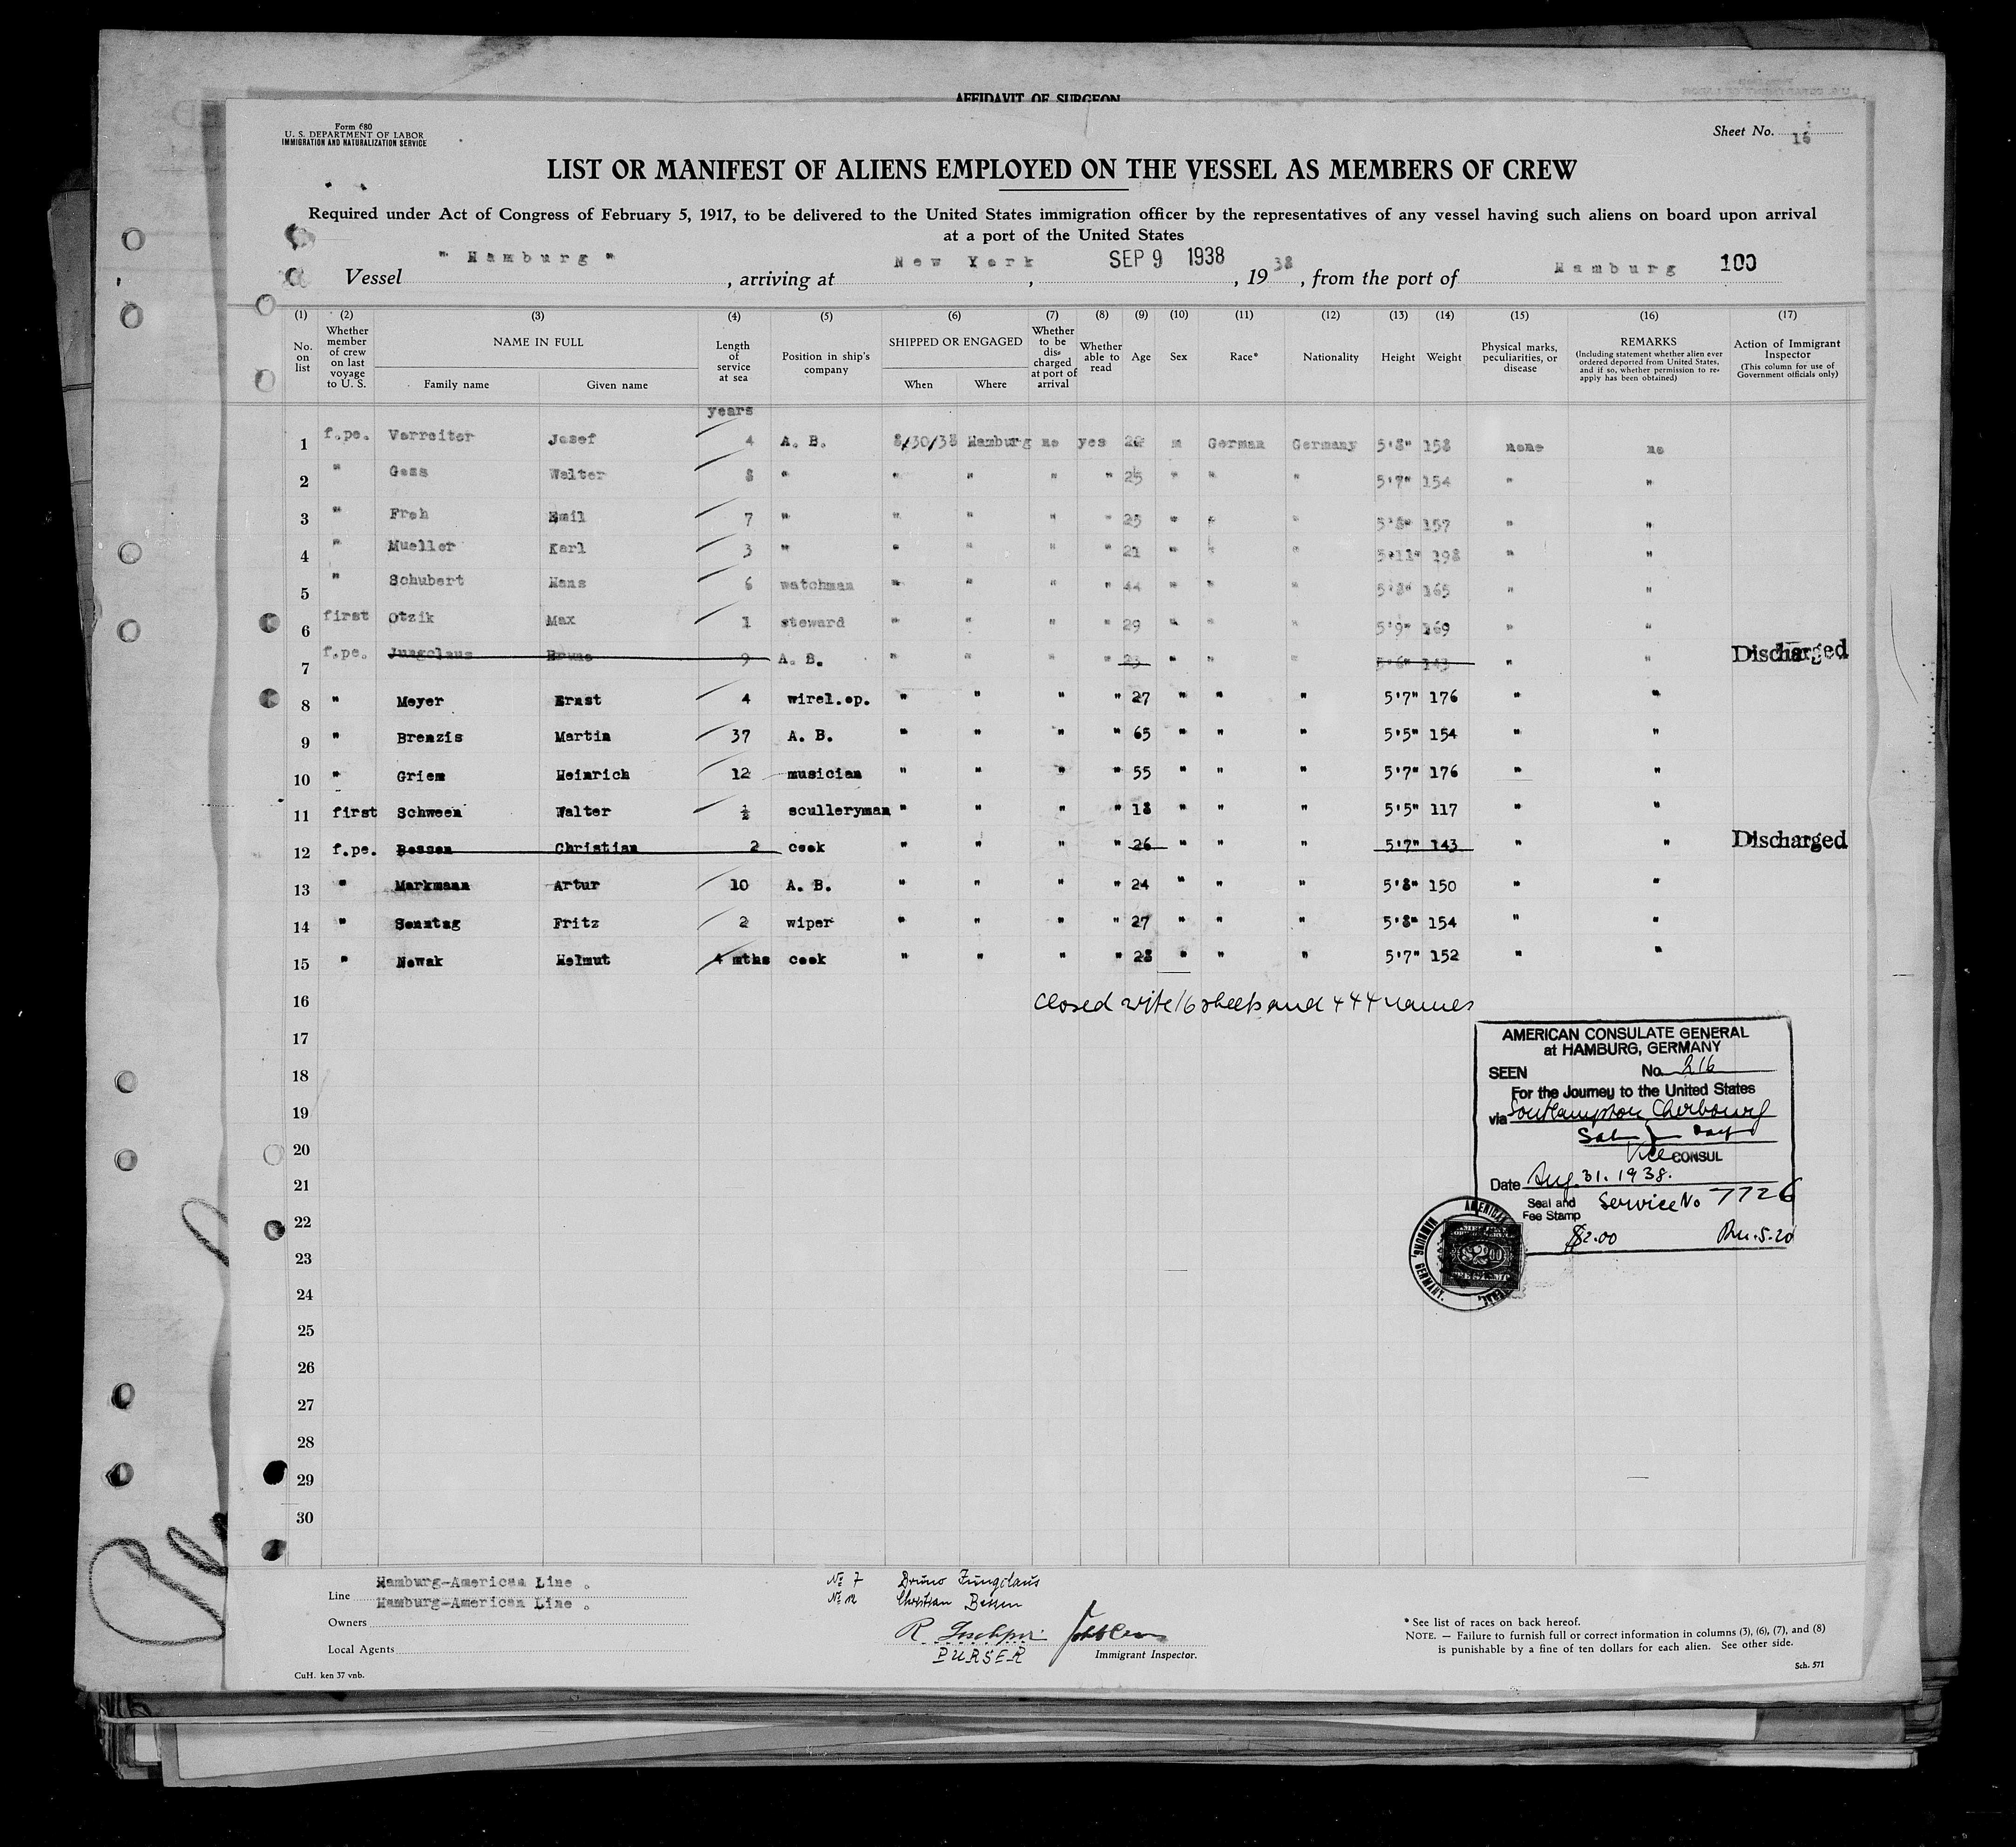 AFFIDAVIT OF SURGEON
Form 680
U. S. DEPARTMENT OF LABOR
IMMIGRATION AND NATURALIZATION SERVICE
Sheet No. 16
LIST OR MANIFEST OF ALIENS EMPLOYED ON THE VESSEL AS MEMBERS OF CREW
Required under Act of Congress of February 5, 1917, to be delivered to the United States immigration officer by the representatives of any vessel having such aliens on board upon arrival
at a port of the United States
Vessel " Hamburg ", arriving at New York, SEP 9 1938, 1938, from the port of Hamburg 100
(1) (2) (3) (4) (5) (6) (7) (8) (9) (10) (11) (12) (13) (14) (15) (16) (17)
No. on list
Whether member of crew on last voyage to U. S.
NAME IN FULL
Family name Given name
Length of service at sea
Position in ship's company
SHIPPED OR ENGAGED
When Where
Whether to be discharged at port of arrival
Whether able to read
Age
Sex
Race*
Nationality
Height
Weight
Physical marks, peculiarities, or disease
REMARKS
(Including statement whether alien ever ordered deported from United States, and if so, whether permission to re-apply has been obtained)
Action of Immigrant Inspector
(This column for use of Government officials only)
years
1 f.pe. Verreiter Josef 4 A. B. 8/30/38 Hamburg no yes m German Germany 5'8" 158 none no
2 " Gess Walter 8 " " " " " 25 " " " 5'7" 154 " "
3 " Froh Emil 7 " " " " " 25 " " " 5'8" 157 " "
4 " Mueller Karl 3 " " " " " 21 " " " 5'11" 198 " "
5 " Schubert Hans 6 watchman " " " " 44 " " " 5'8" 165 " "
6 first Otzik Max 1 steward " " " " 29 " " " 5'9" 169 " "
7 f.pe. Jungclaus Bruno 9 A. B. " " " " 23 " " " 5'6" 143 " " Discharged
8 " Meyer Ernst 4 wirel.op. " " " " 27 " " " 5'7" 176 " "
9 " Brenzis Martin 37 A. B. " " " " 65 " " " 5'5" 154 " "
10 " Griem Heinrich 12 musician " " " " 55 " " " 5'7" 176 " "
11 first Schween Walter ½ sculleryman " " " " 18 " " " 5'5" 117 " "
12 f.pe. Bessen Christian 2 cook " " " " 26 " " " 5'7" 143 " " Discharged
13 " Markmann Artur 10 A. B. " " " " 24 " " " 5'8" 150 " "
14 " Sonntag Fritz 2 wiper " " " " 27 " " " 5'8" 154 " "
15 " Nowak Helmut 4 mths cook " " " " 28 " " " 5'7" 152 " "
16 closed with 16 sheets and 444 names
17
18
19
20
21
22
23
24
25
26
27
28
29
30
AMERICAN CONSULATE GENERAL
at HAMBURG, GERMANY
SEEN No. 216
For the Journey to the United States
via Southampton Cherbourg
Vice CONSUL
Date Aug. 31. 1938.
Seal and Fee Stamp
Service No 7726
$2.00 Rm.5.20
AMERICAN
HAMBURG, GERMANY.
Line Hamburg-American Line .
Owners Hamburg-American Line .
Local Agents
CuH. ken 37 vnb.
No 7 Bruno Jungclaus
No 12 Christian Bessen
PURSER
Immigrant Inspector.
* See list of races on back hereof.
NOTE. — Failure to furnish full or correct information in columns (3), (6), (7), and (8)
is punishable by a fine of ten dollars for each alien. See other side.
Sch. 571